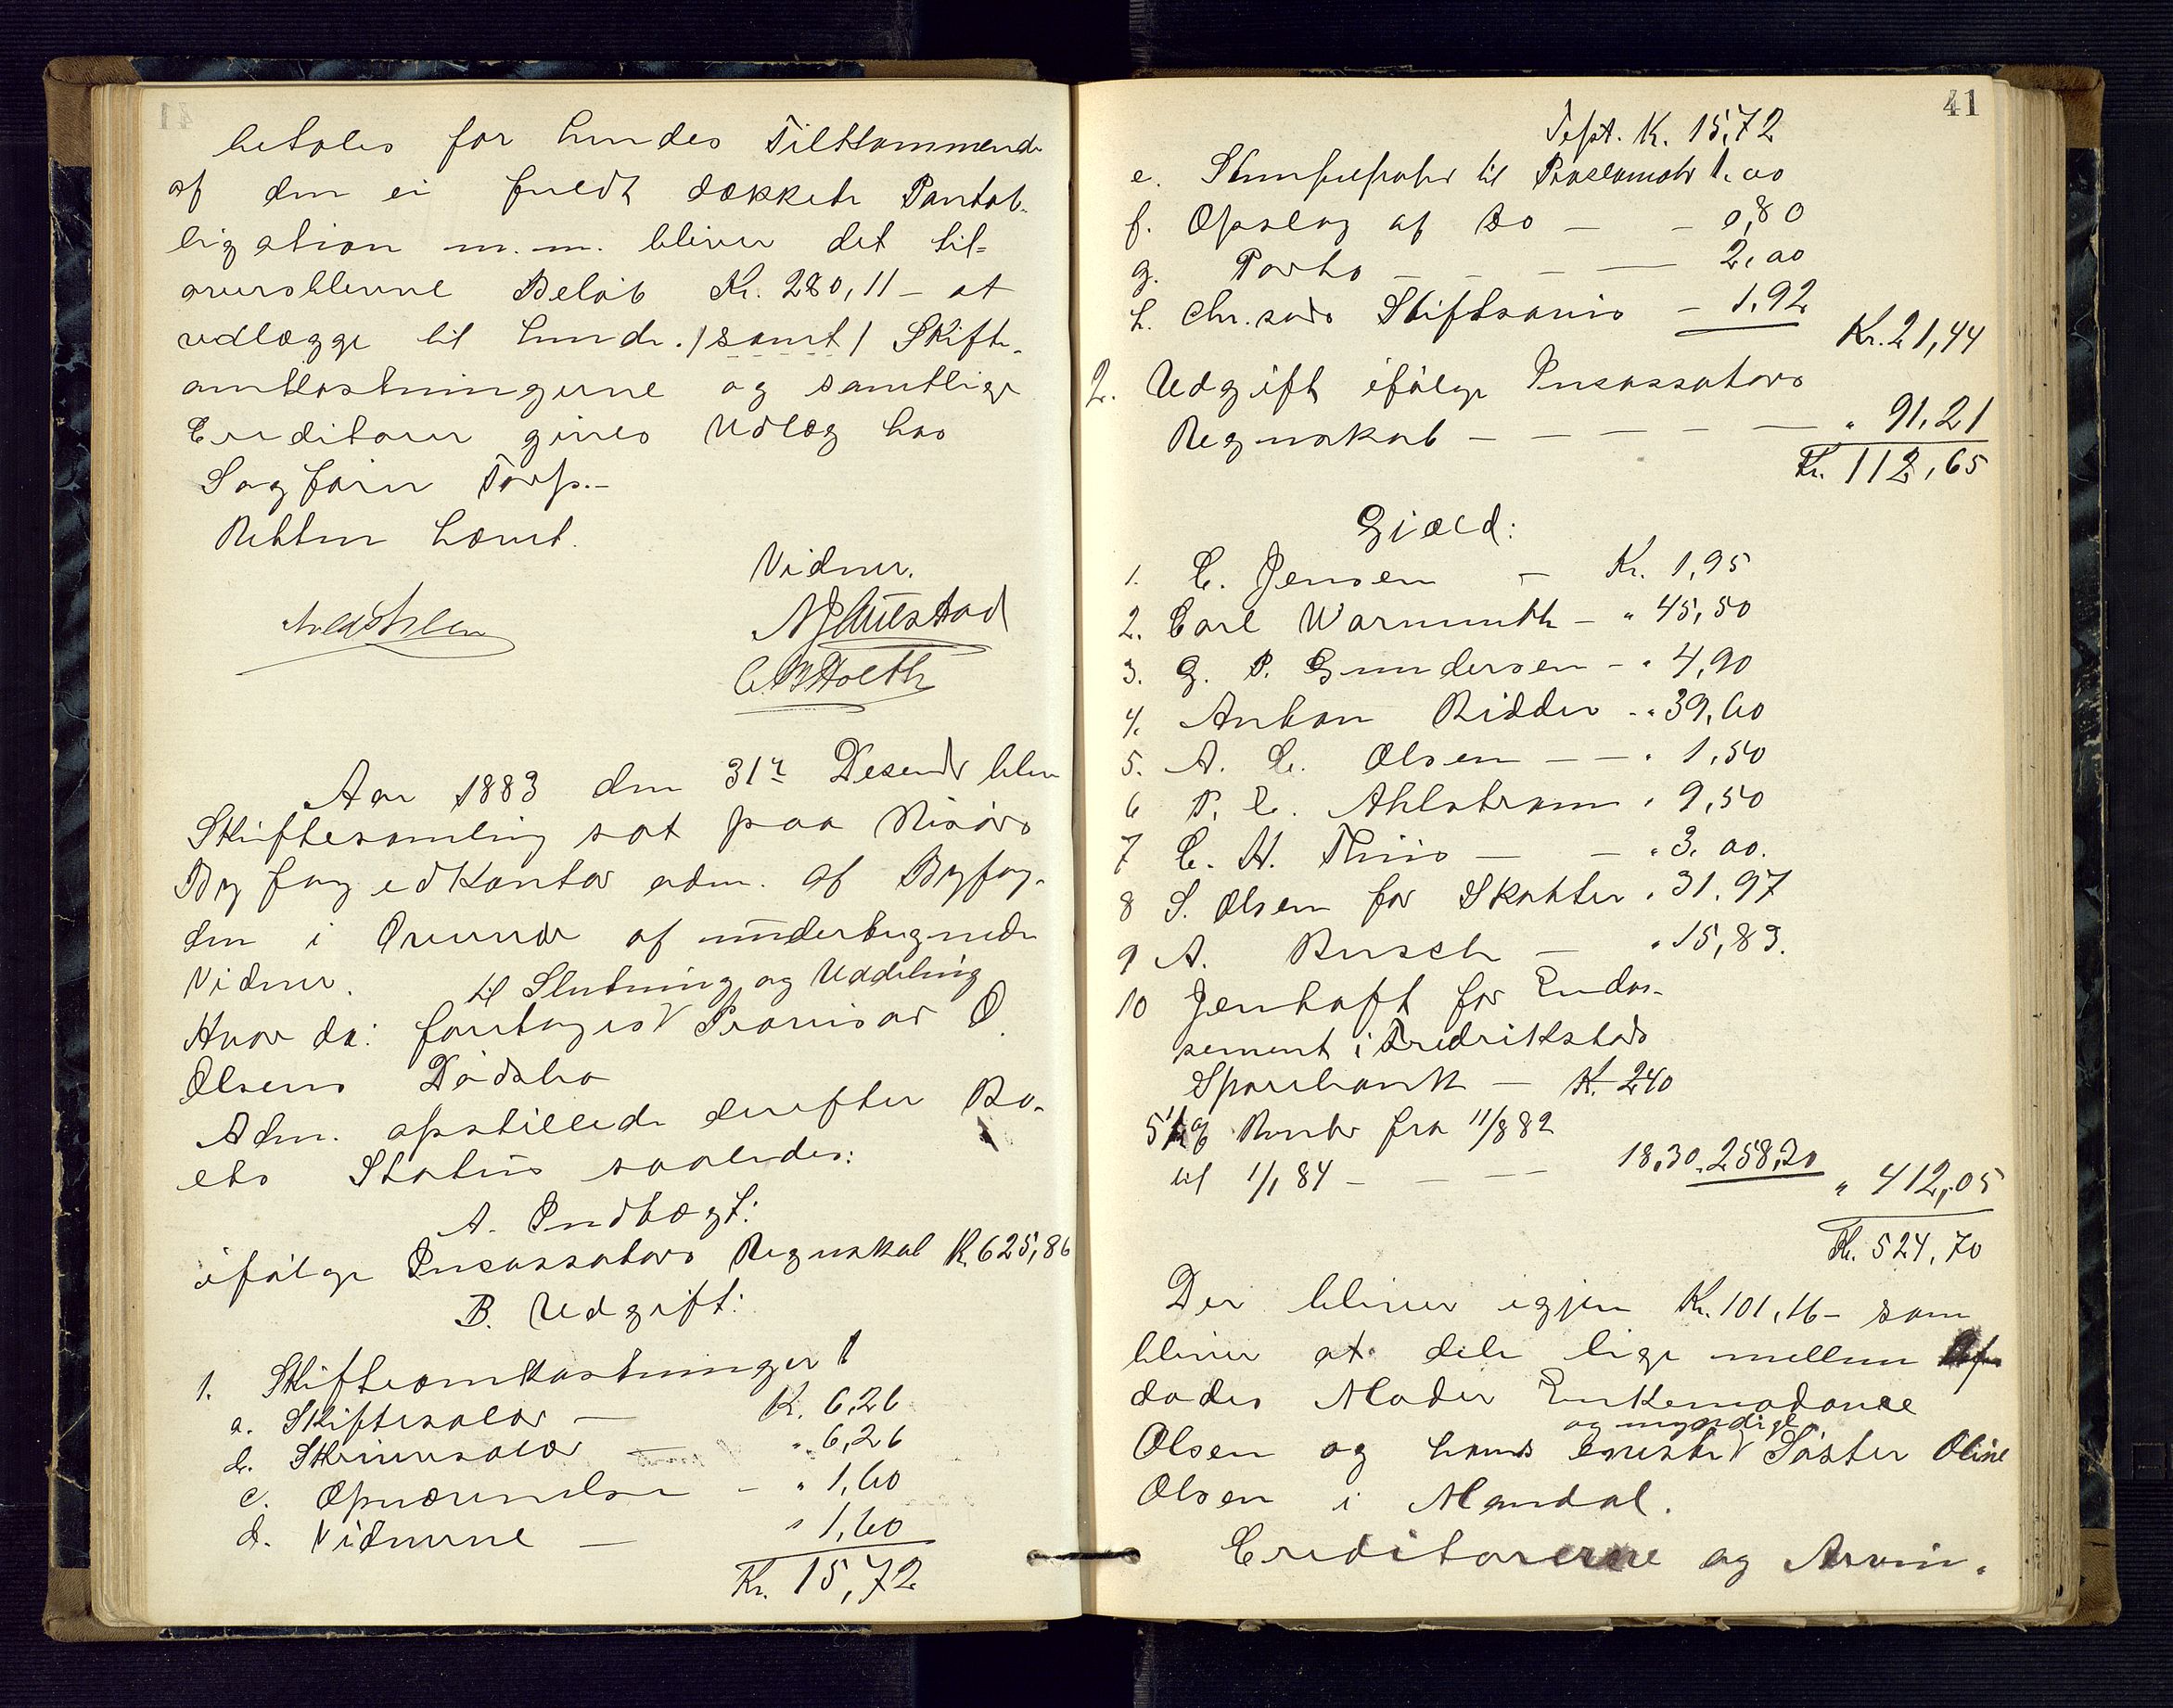 betales for hendes Tilkommende
af den ei fuldt dækkede Pantob-
ligation m.m. bliver det til-
oversblevne Beløb Kr. 280,11 – at
udlægge til hende. / samt / Skifte-
omkostningerne og samtlige
Creditorer gives Udlæg hos
Sagfører Torp.–
Retten hævet.
Vidner.
C B Holth
Aar 1883 den 31te Decembr blev
Skiftesamling sat paa Risørs
Byfogedkontor adm. af Byfog-
den i Overvær af undertegnede
Vidner.
til Slutning og Uddeling
Hvor da: foretoges V Provisor O.
Olsens Dødsbo
Adm. opstillede derefter Bo-
ets Status saaledes:
A. Indtægt:
ifølge Incassators Regnskab K. 625,86
B. Udgift:
1. Skifteomkostninger
a. Skiftesalær – K. 6,26
b. Skriversalær – " 6,26
c. Opnævnelse – " 1,60
d. Vidnerne – " 1,60
Kr. 15,72
41
Tspt. K. 15,72
e. Stempelpapir til Proclamatr 1,00
f. Opslag af Do – – 0,80
g. Porto – – – – 2,00
h. Chr.sands Stiftsavis – 1,92
Kr. 21,44
2. Udgift ifølge Incassators
Regnskab – – – – – " 91,21
Kr. 112,65
Gjæld:
1. C. Jensen – Kr. 1,95
2. Carl Warmuth – " 45,50
3. G. P. Gundersen – " 4,90
4. Anton Ridder – " 39,60
5. A. C. Olsen – – " 1,50
6 P. C. Ahlstrøm " 9,50
7 C. H. Thiis – – " 3,00.
8 S. Olsen for Skatter " 31,97
9 A. Busch – " 15,83.
10 Jentoft for Endos-
sement i Fredrikstads
Sparebank – K. 240
5½ % Renter fra 11/8 82
til 1/1 84 – – – 18,30. 258,30
" 412,05
Kr. 524,70
Der bliver igjen Kr. 101,16 – som
bliver at dele lige mellem Af-
dødes Moder Enkemadame
og myndige
Olsen og hans eneste V Søster Oline
Olsen i Mandal.
Creditorerne og Arvin-